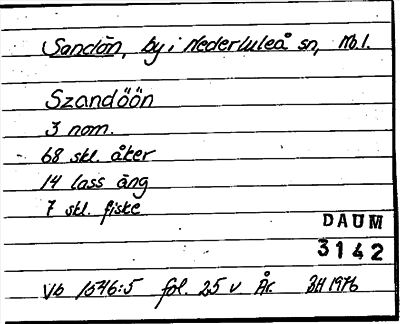 Sandön, by i Nederluleå sn, Nb.l.
Szandöön
3 nom.
68 skl. åker
14 lass äng
7 skl. fiske
DAUM
3142
Vb 1646:5 fol. 25 v År. BH 1976